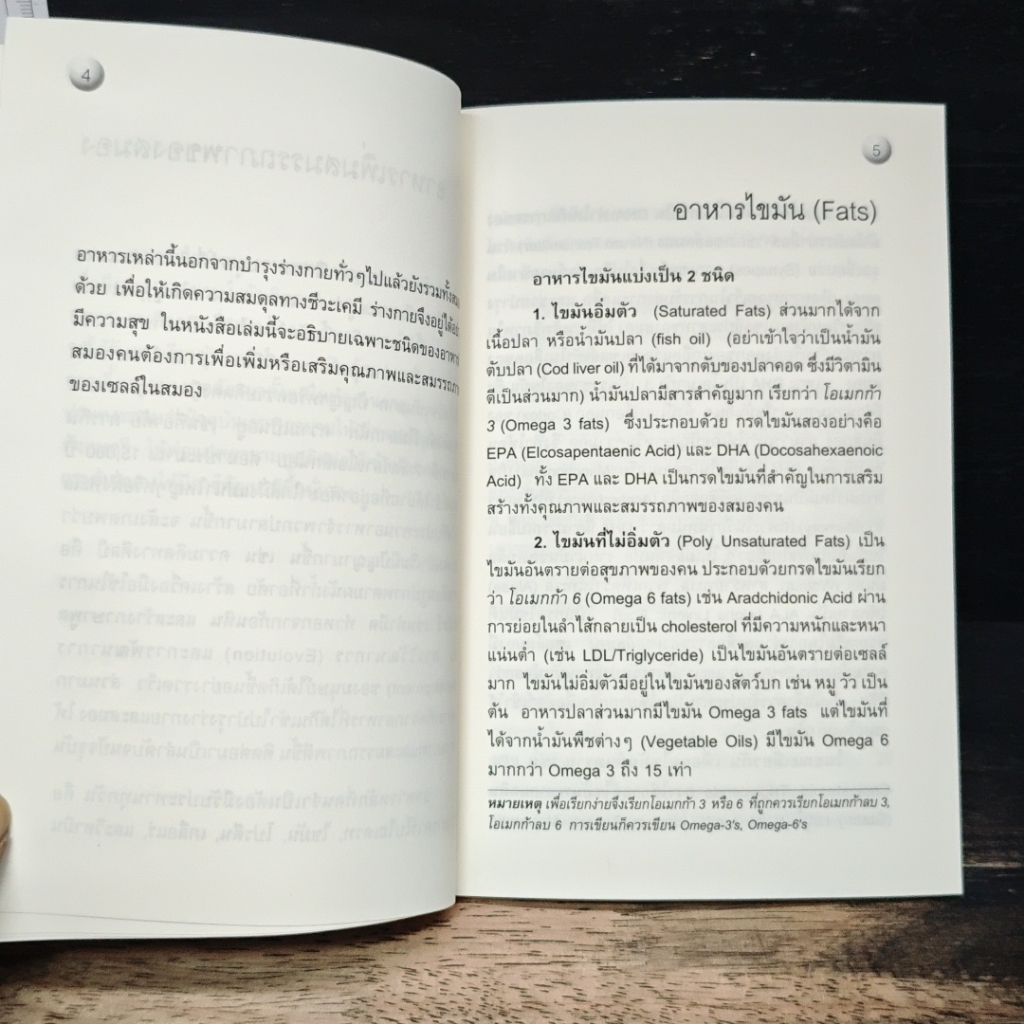 4
อาหารเหล่านี้นอกจากบำรุงร่างกายทั่วๆไปแล้วยังรวมทั้ง
ด้วย เพื่อให้เกิดความสมดุลทางชีวะเคมี ร่างกายจึงอยู่ได้
มีความสุข ในหนังสือเล่มนี้จะอธิบายเฉพาะชนิดของอาหาร
สมองคนต้องการเพื่อเพิ่มหรือเสริมคุณภาพและสมรรถภา
ของเซลล์ในสมอง
5
อาหารไขมัน (Fats)
อาหารไขมันแบ่งเป็น 2 ชนิด
1. ไขมันอิ่มตัว (Saturated Fats) ส่วนมากได้จาก
เนื้อปลา หรือน้ำมันปลา (fish oil) (อย่าเข้าใจว่าเป็นน้ำมัน
ตับปลา (Cod liver oil) ที่ได้มาจากตับของปลาคอด ซึ่งมีวิตามิน
ดีเป็นส่วนมาก) น้ำมันปลามีสารสำคัญมาก เรียกว่า โอเมกก้า
3 (Omega 3 fats) ซึ่งประกอบด้วย กรดไขมันสองอย่างคือ
EPA (Elcosapentaenic Acid) และ DHA (Docosahexaenoic
Acid) ทั้ง EPA และ DHA เป็นกรดไขมันที่สำคัญในการเสริม
สร้างทั้งคุณภาพและสมรรถภาพของสมองคน
2. ไขมันที่ไม่อิ่มตัว (Poly Unsaturated Fats) เป็น
ไขมันอันตรายต่อสุขภาพของคน ประกอบด้วยกรดไขมันเรียก
ว่า โอเมกก้า 6 (Omega 6 fats) เช่น Aradchidonic Acid ผ่าน
การย่อยในลำไส้กลายเป็น cholesterol ที่มีความหนักและหนา
แน่นต่ำ (เช่น LDL/Triglyceride) เป็นไขมันอันตรายต่อเซลล์
มาก ไขมันไม่อิ่มตัวมีอยู่ในไขมันของสัตว์บก เช่น หมู วัว เป็น
ต้น อาหารปลาส่วนมากมีไขมัน Omega 3 fats แต่ไขมันที่
ได้จากน้ำมันพืชต่างๆ (Vegetable Oils) มีไขมัน Omega 6
มากกว่า Omega 3 ถึง 15 เท่า
หมายเหตุ เพื่อเรียกง่ายจึงเรียกโอเมกก้า 3 หรือ 6 ที่ถูกควรเรียกโอเมกก้าลบ 3,
โอเมกก้าลบ 6 การเขียนก็ควรเขียน Omega-3's, Omega-6's